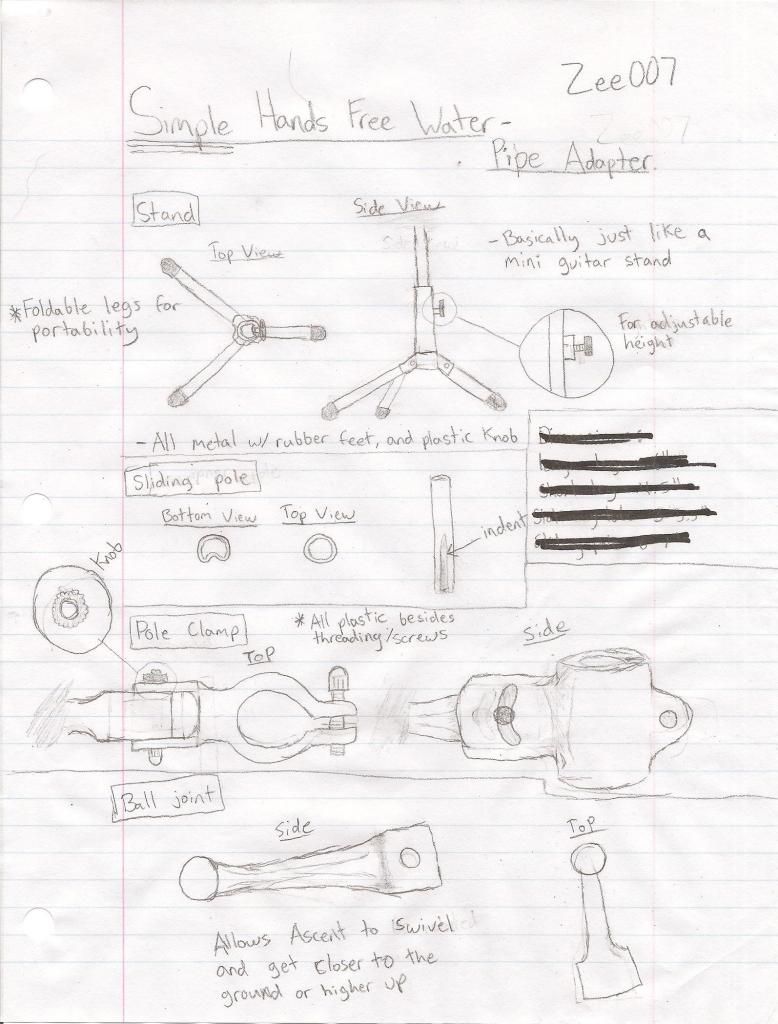 Zee007
Simple Hands Free Water-
Pipe Adapter.
Stand
Side View
Top View
- Basically just like a
mini guitar stand
*Foldable legs for
portability
For adjustable
height
- All metal w/ rubber feet, and plastic Knob
Sliding pole
Bottom View
Top View
indent
Knob
Pole Clamp
* All plastic besides
threading/screws
Side
Top
Ball joint
Side
Top
Allows Ascent to Swivel
and get closer to the
ground or higher up